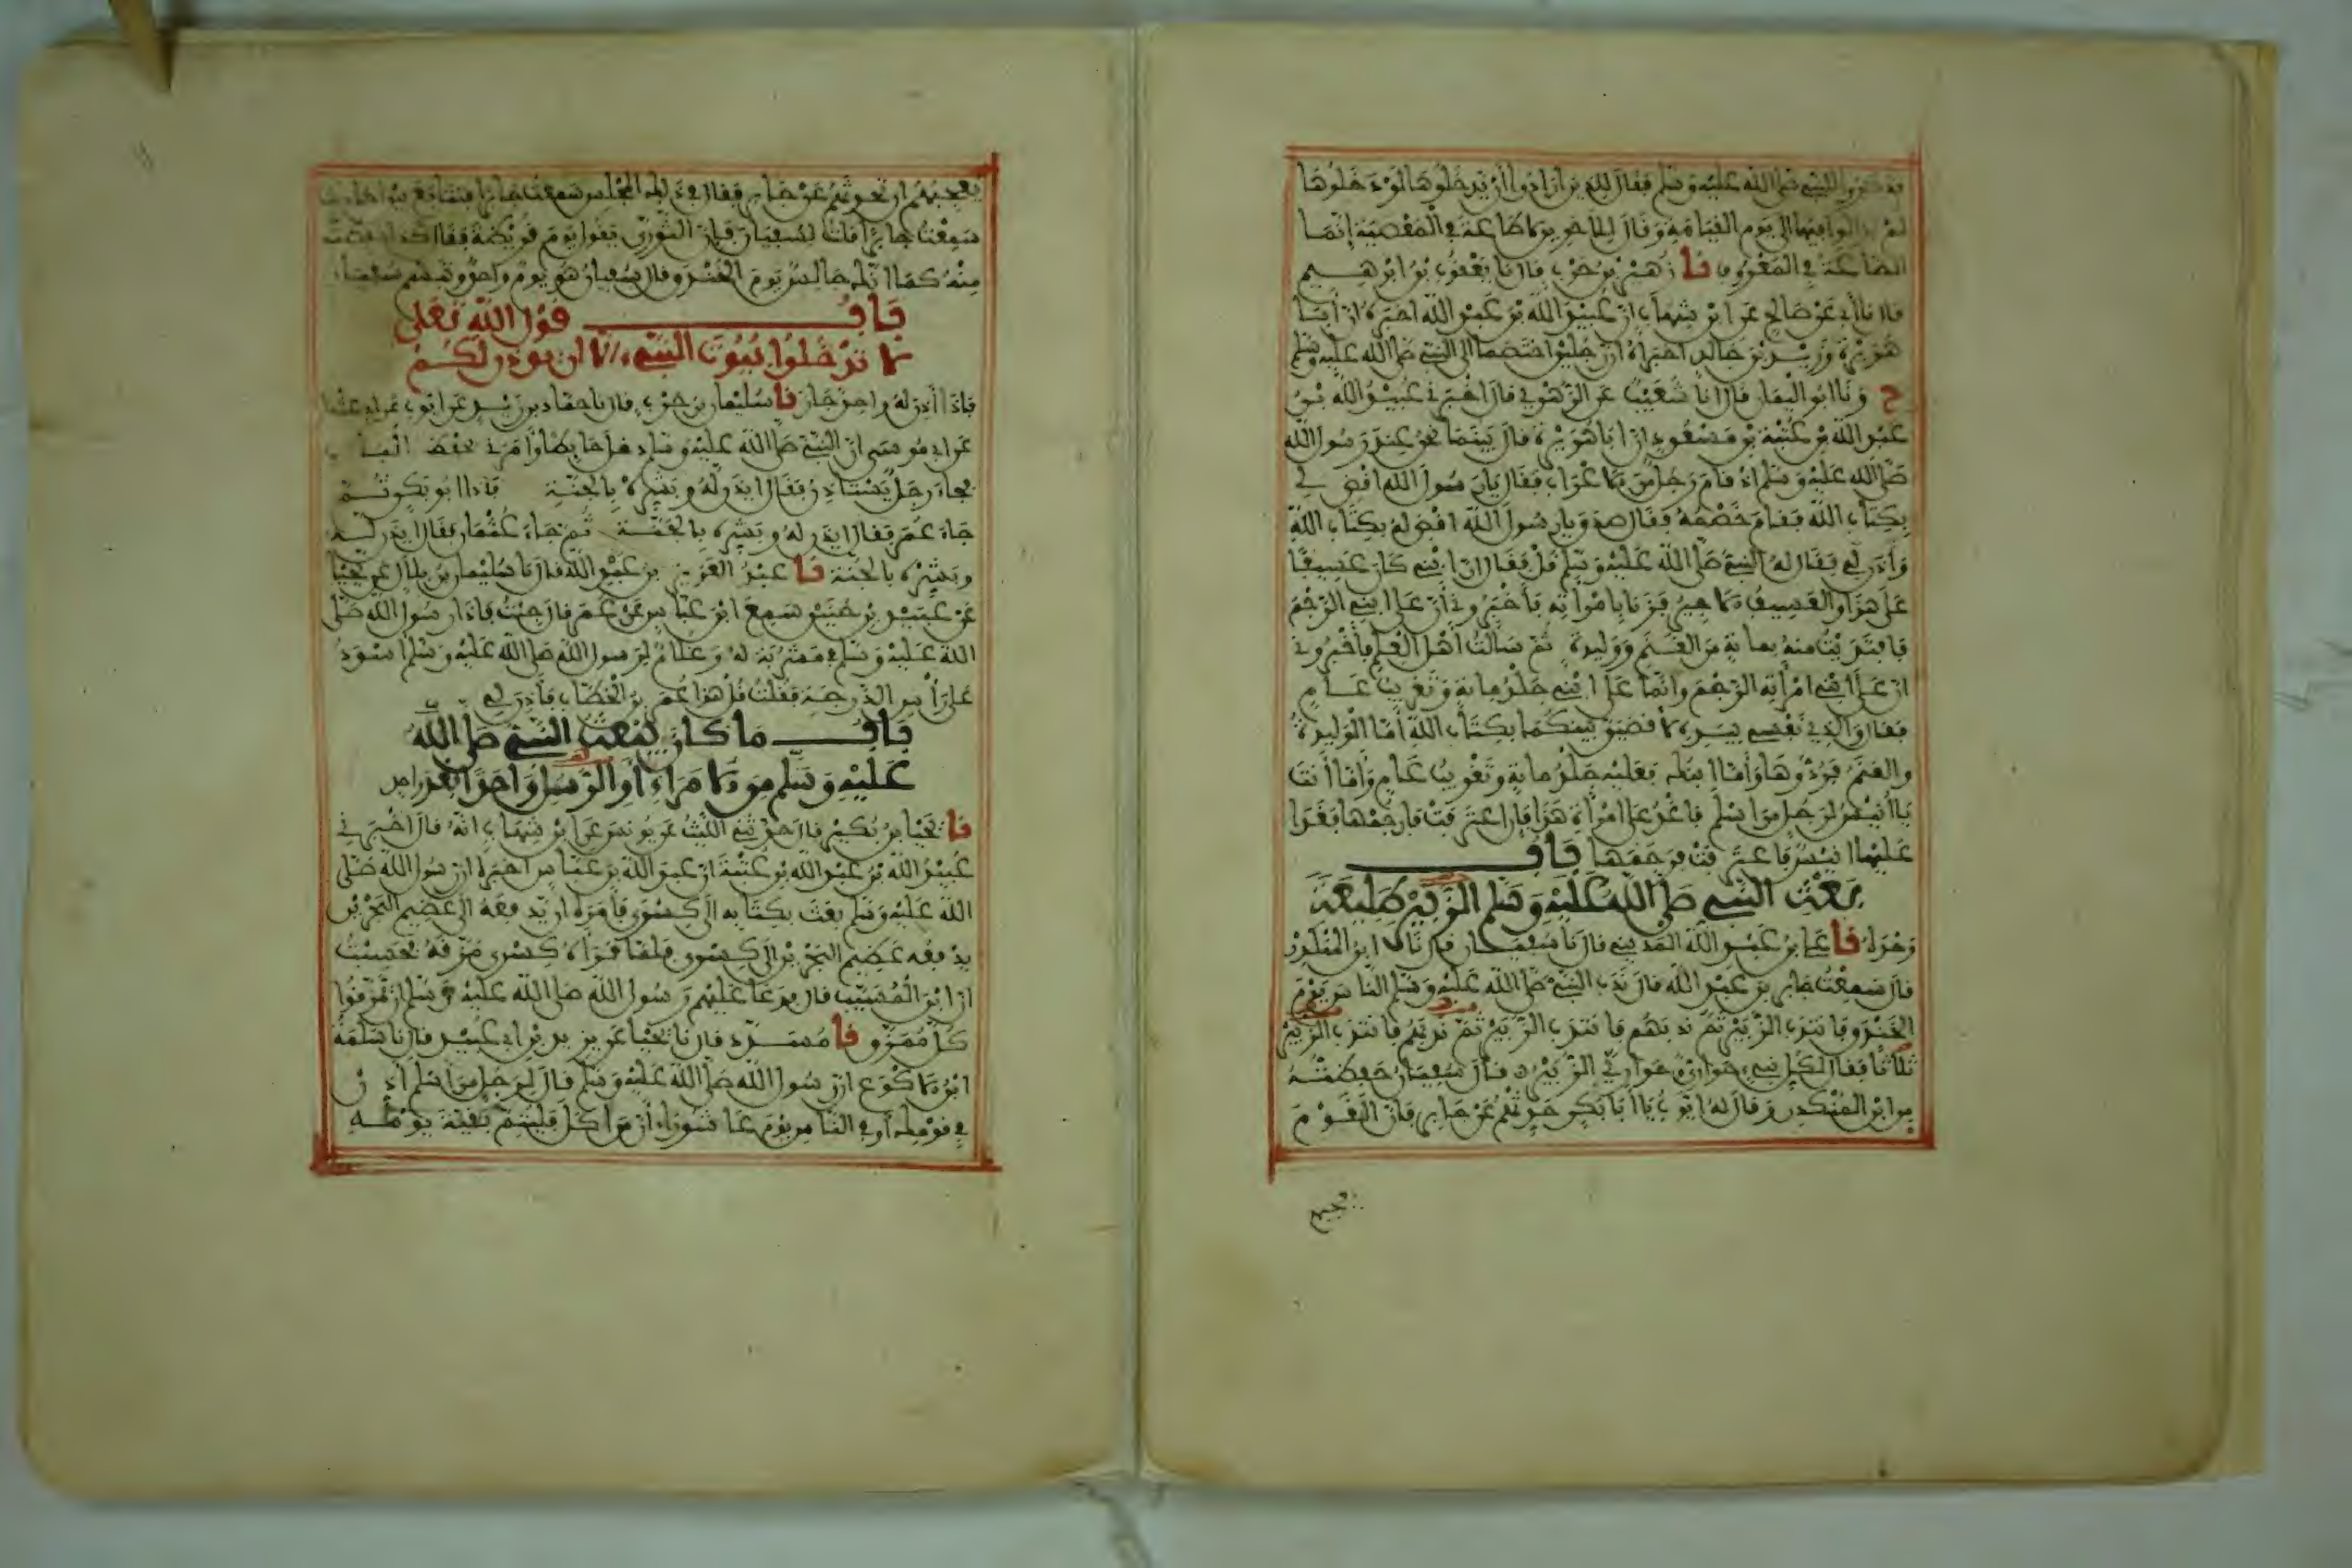 فذكروا للنبي صلى الله عليه وسلم فقال للذين أرادوا أن يدخلوها لو دخلوها
لم يزالوا فيها إلى يوم القيامة وقال للآخرين لا طاعة في المعصية إنما
الطاعة في المعروف نا زهير بن حرب قال نا يعقوب بن ابرهيم
قال نا أبي عن صالح عن ابن شهاب أن عبيد الله بن عبد الله أخبره أن أبا
هريرة وزيد بن خالد أخبراه أن رجلين اختصما إلى النبي صلى الله عليه وسلم
ح ونا أبو اليمان قال أنا شعيب عن الزهري قال أخبرني عبيد الله بن
عبد الله بن عتبة بن مسعود أن أبا هريرة قال بينما نحن عند رسول الله
صلى الله عليه وسلم إذ قام رجل من الأعراب فقال يا رسول الله اقض لي
بكتاب الله فقام خصمه فقال صدق يا رسول الله اقض له بكتاب الله
وأذن لي فقال له النبي صلى الله عليه وسلم قل فقال إن ابني كان عسيفا
على هذا والعسيف الأجير فزنا بامرأته فأخبروني أن على ابني الرجم
فافتديت منه بماية من الغنم ووليدة ثم سألت أهل العلم فأخبروني
أن على امرأته الرجم وإنما على ابني جلد ماية وتغريب عام
فقال والذي نفسي بيده لأقضين بينكما بكتاب الله أما الوليدة
والغنم فردوها وأما ابنك فعليه جلد ماية وتغريب عام وأما أنت
يا أنيس لرجل من أسلم فاغد على امرأة هذا فإن اعترفت فارجمها فغدا
عليها أنيس فاعترفت فرجمها باب
بعث النبي صلى الله عليه وسلم الزبير طليعة
وحده نا علي بن عبد الله المديني قال نا سفيان قال نا ابن المنكدر
قال سمعت جابر بن عبد الله قال ندب النبي صلى الله عليه وسلم الناس يوم
الخندق فانتدب الزبير ثم ندبهم فانتدب الزبير ثم ندبهم فانتدب الزبير
ثلاثا فقال لكل نبي حواري وحواري الزبير قال سفيان حفظته
من ابن المنكدر وقال له أيوب يا أبا بكر حدثهم عن جابر فإن القوم
يعجبهم
يعجبهم أن تحدثهم عن جابر فقال في ذلك المجلس سمعت جابرا فتتابع بين أحاديث
سمعت جابرا قلت لسفيان فإن الثوري يقول يوم قريظة فقال كذا حفظت
منه كما أنك جالس يوم الخندق وقال سفيان هو يوم واحد وتبسم سفيان
باب قول الله تعلى
لا تدخلوا بيوت النبي إلا أن يوذن لكم
فإذا أذن له واحد جاز نا سليمان بن حرب قال نا حماد بن زيد عن أيوب عن أبي عثمان
عن أبي موسى أن النبي صلى الله عليه وسلم دخل حايطا وأمرني بحفظ الباب
فجاء رجل يستاذن فقال ايذن له وبشره بالجنة فإذا أبو بكر ثم
جاء عمر فقال ايذن له وبشره بالجنة ثم جاء عثمان فقال ايذن له
وبشره بالجنة نا عبد العزيز بن عبد الله قال نا سليمان بن بلال عن يحيا
عن عبيد بن حنين سمع ابن عباس عن عمر قال جئت فإذا رسول الله صلى
الله عليه وسلم في مشربة له وغلام لرسول الله صلى الله عليه وسلم أسود
على رأس الدرجة فقلت قل هذا عمر بن الخطاب فأذن لي
باب ما كان يبعث النبي صلى الله
عليه وسلم من الأمراء والرسل واحدا بعد واحد
نا يحيا بن بكير قال حدثني الليث عن يونس عن ابن شهاب أنه قال أخبرني
عبيد الله بن عبد الله بن عتبة أن عبد الله بن عباس أخبره أن رسول الله صلى
الله عليه وسلم بعث بكتابه إلى كسرى فأمره أن يدفعه إلى عظيم البحرين
يدفعه عظيم البحرين إلى كسرى فلما قرأه كسرى مزقه فحسبت
أن ابن المسيب قال فدعا عليهم رسول الله صلى الله عليه وسلم أن يمزقوا
كل ممزق نا مسدد قال نا يحيا عن يزيد بن أبي عبيد قال نا سلمة
ابن الأكوع أن رسول الله صلى الله عليه وسلم قال لرجل من أسلم أذن
في قومك أو في الناس يوم عاشوراء أن من أكل فليتم بقية يومه